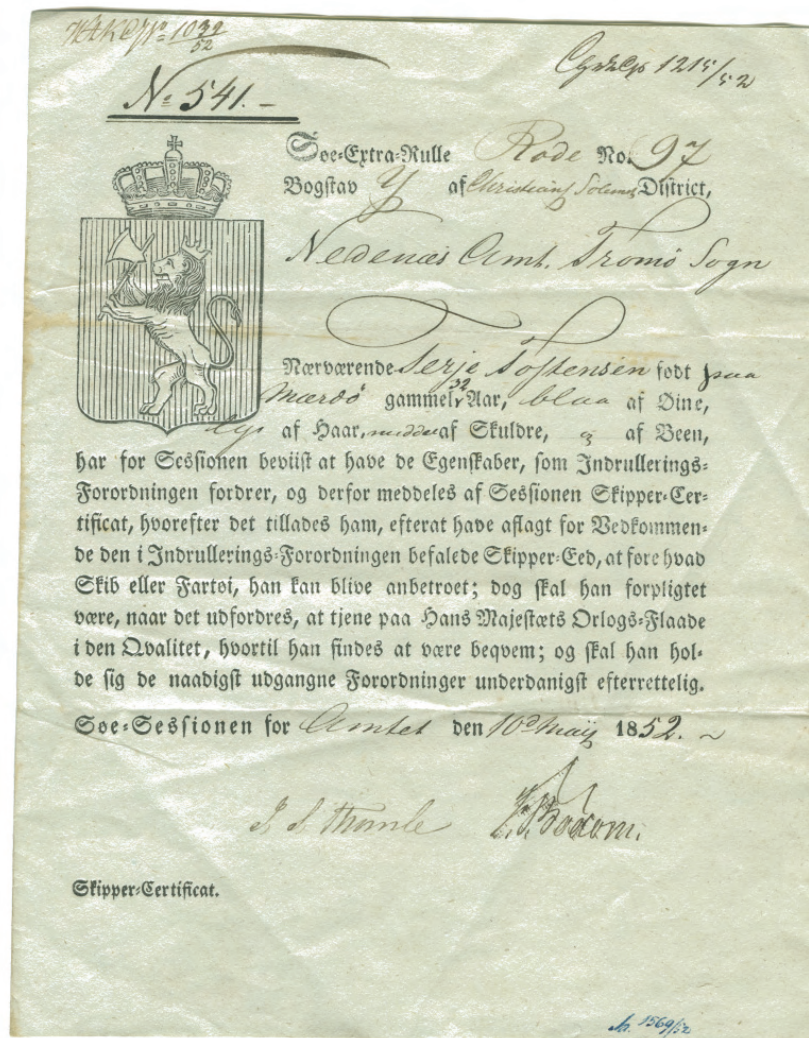 No 541.-
1215/52
Søe-Extra-Rulle Rode No. 97
Bogstav Y af Christians Søens District,
Nedenæs Amt. Tromø Sogn
Nærværende Terje Tostensen født paa
Mærdö gammel 32 Aar, blaa af Øine,
lys af Haar, af Skuldre, af Been,
har for Sessionen beviist at have de Egenskaber, som Indrullerings-
Forordningen fordrer, og derfor meddeles af Sessionen Skipper-Cer-
tificat, hvorefter det tillades ham, efterat have aflagt for Vedkommen-
de den i Indrullerings-Forordningen befalede Skipper-Eed, at føre hvad
Skib eller Fartøi, han kan blive anbetroet; dog skal han forpligtet
være, naar det udfordres, at tjene paa Hans Majestæts Orlogs-Flaade
i den Qvalitet, hvortil han findes at være beqvem; og skal han hol-
de sig de naadigst udgangne Forordninger underdanigst efterrettelig.
Søe-Sessionen for Amtet den 10d Maij 1852.
Skipper-Certificat.
1569/52